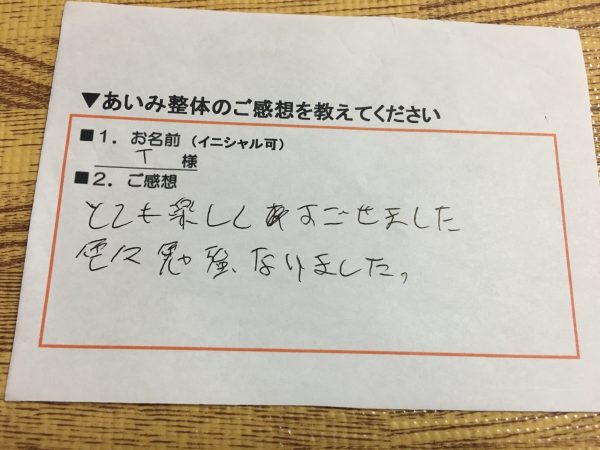 ▼あいみ整体のご感想を教えてください
■1．お名前（イニシャル可）
T 様
■2．ご感想
とても楽しくすごせました
色々勉強、なりました。